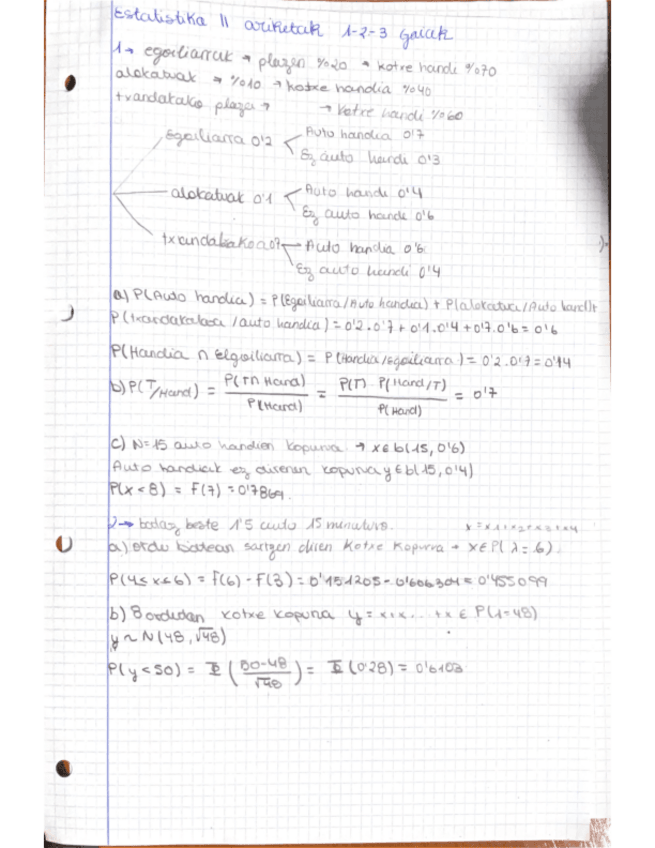 Estatistika II ariketak 1-2-3 Gaiak
1→ egoiliarrak → plazen %20 → kotxe handi %70
alokatuak → %10 → kotxe handia %40
txandakako plaza → → kotxe handi %60
Egoiliarra 0'2 Auto handia 0'7
Ez auto handi 0'3
alokatuak 0'1 Auto handi 0'4
Ez auto handi 0'6
txandakakoa 0'7 Auto handia 0'6
Ez auto handi 0'4
a) P(Auto handia) = P(Egoiliarra/Auto handia) + P(alokatua/Auto handi)+
P(txandakakoa/auto handia) = 0'2·0'7+0'1·0'4+0'7·0'6 = 0'6
P(Handia ∩ elgoiliarra) = P(Handia/egoiliarra) = 0'2·0'7 = 0'14
b) P(T/Hand) = P(T∩Hand)/P(Hand) = P(T)·P(Hand/T)/P(Hand) = 0'7
c) N=15 auto handien kopurua → x∈b(15,0'6)
Auto handiak ez direnen kopurua y∈b(15,0'4)
P(x<8) = F(7) = 0'7869.
2→ batez beste 1'5 auto 15 minuturo. x=x1+x2+x3+x4
a) ordu batean sartzen diren kotxe kopurua → x∈P(λ=6)
P(4≤x≤6) = F(6)-F(3) = 0'151205-0'606304 = 0'455099
b) 8 ordutan kotxe kopurua y=x+x... +x ∈ P(λ=48)
y~N(48,√48)
P(y<50) = Φ(50-48/√48) = Φ(0'28) = 0'6103